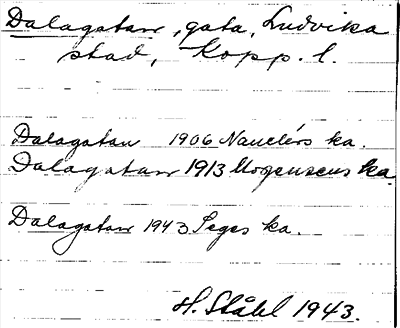 Dalagatan, gata, Ludvika
stad, Kopp. l.
Dalagatan 1906 Nauclérs ka.
Dalagatan 1913 Mogensens ka
Dalagatan 1943 Seges ka.
H. Ståhl 1943.